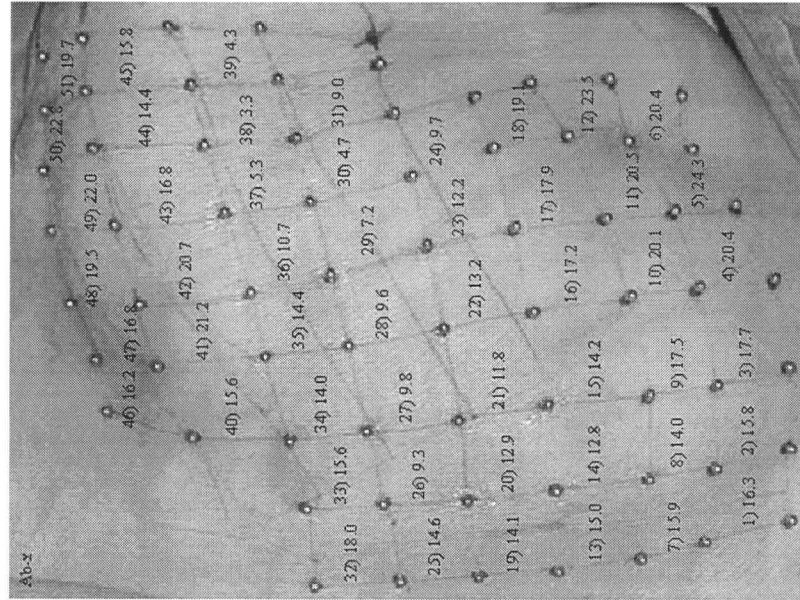 Ab-z
1) 16.3
2) 15.8
3) 17.7
4) 20.4
5) 24.3
6) 20.4
7) 15.9
8) 14.0
9) 17.5
10) 20.1
11) 20.5
12) 23.5
13) 15.0
14) 12.8
15) 14.2
16) 17.2
17) 17.9
18) 19.1
19) 14.1
20) 12.9
21) 11.8
22) 13.2
23) 12.2
24) 9.7
25) 14.6
26) 9.3
27) 9.8
28) 9.6
29) 7.2
30) 4.7
31) 9.0
32) 18.0
33) 15.6
34) 14.0
35) 14.4
36) 10.7
37) 5.3
38) 3.3
39) 4.3
40) 15.6
41) 21.2
42) 20.7
43) 16.8
44) 14.4
45) 15.8
46) 16.2
47) 16.8
48) 19.5
49) 22.0
50) 22.8
51) 19.7